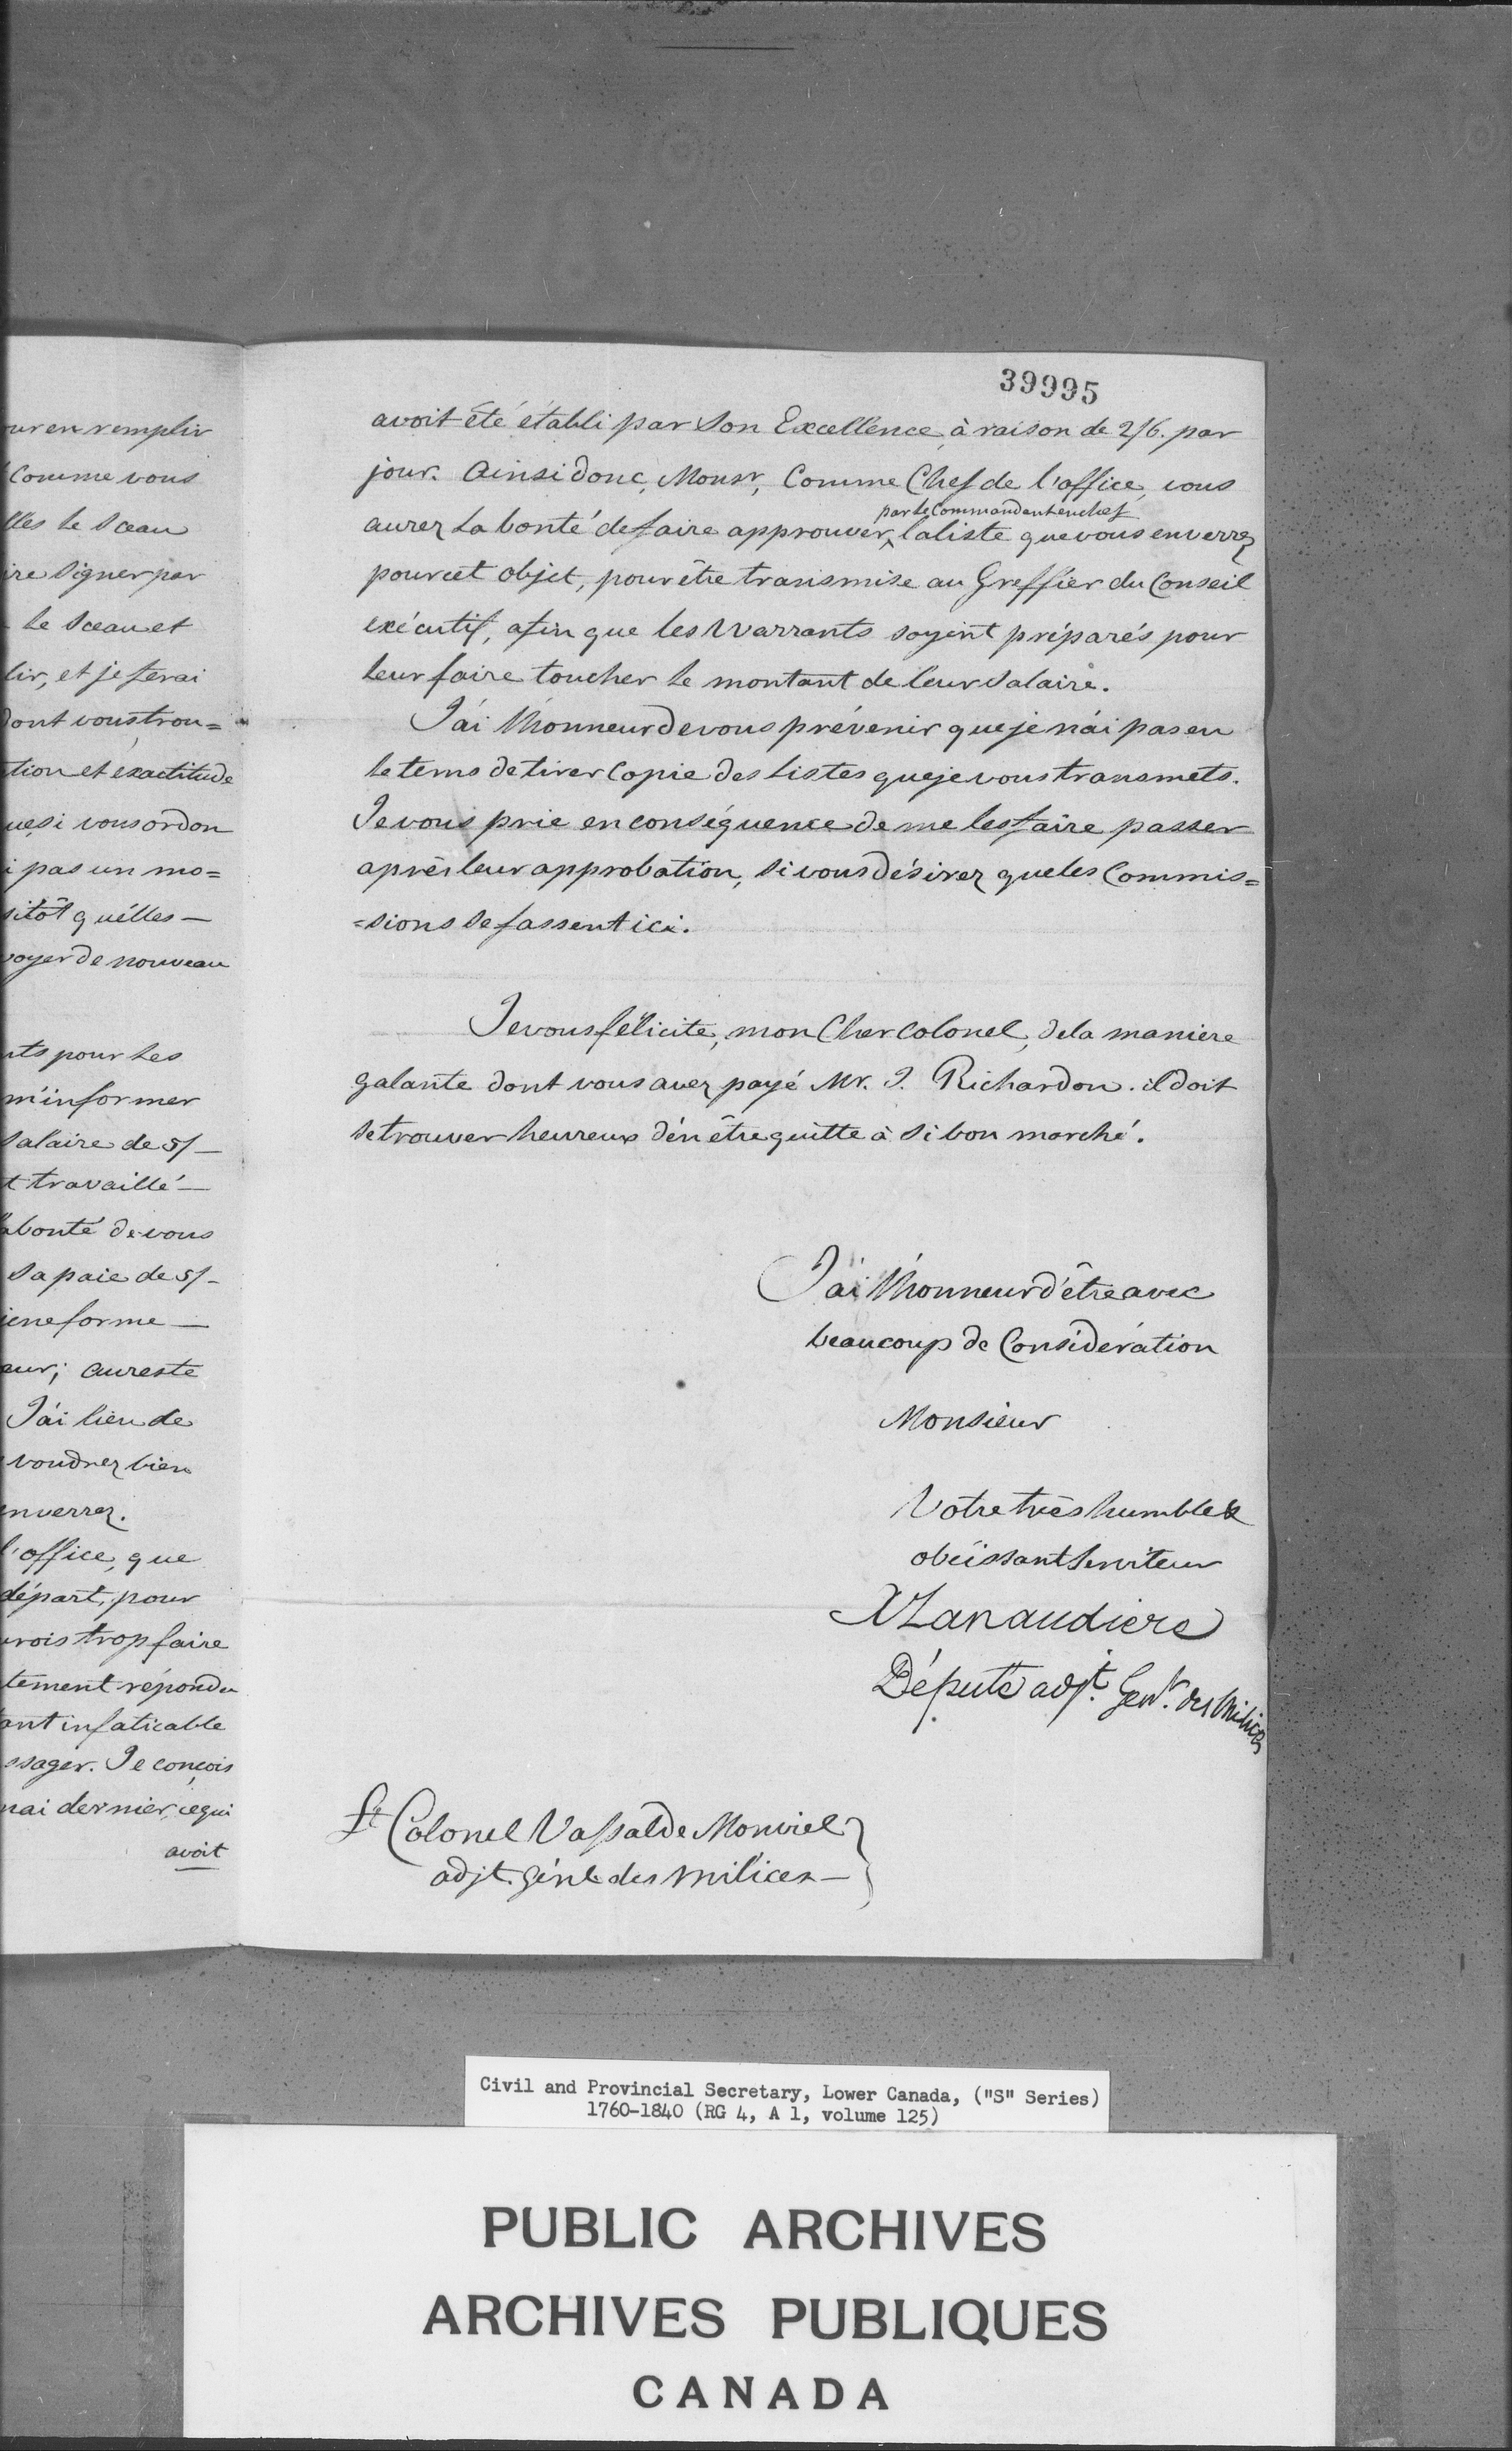 ur en remplir
Comme vous
lles le Sceau
ire Signer par
le Sceau et
lir, et je ferai
dont vous trou=
tion et exactitude
ue si vous ordon
i pas un mo=
sitôt qu'elles —
voyer de nouveau
nts pour les
m'informer
Salaire de 5/ —
t travaillé —
bonté de vous
Sa paie de 5/ -
ieneforme —
eur; au reste
J'ai lieu de
voudrez bien
enverrez.
l'office, que
départ, pour
rois trop faire
tement répondu
ant infaticable
ssager. Je conçois
mai dernier, ce qui
avoit
39995
avoit été établi par Son Excellence, à raison de 2/6. par
jour. Ainsi donc, Monsr, Comme Chef de l'office, vous
par le Commandant en chef
aurez la bonté de faire approuver, la liste que vous enverrez
pour cet objet, pour être transmise au Greffier du Conseil
exécutif, afin que les Warrants soyent préparés pour
leur faire toucher le montant de leur Salaire.
J'ai l'honneur de vous prévenir que je n'ai pas eu
le tems de tirer Copie des Listes que je vous transmets.
Je vous prie en conséquence de me les faire passer
après leur approbation, si vous désirez que les Commis=
=sions se fassent ici.
Je vous félicite, mon Cher Colonel, de la manière
galante dont vous avez payé Mr. J. Richardon. il doit
se trouver heureux d'en être quitte à si bon marché.
J'ai l'honneur d'être avec
beaucoup de Considération
Monsieur
Votre très humble &
obéissant Serviteur
X Lanaudiere
Député adjt. Genl. des Milices
Lt Colonel Vassal de Monviel
adjt. génl. des Milices —
Civil and Provincial Secretary, Lower Canada, ("S" Series)
1760-1840 (RG 4, A 1, volume 125)
PUBLIC ARCHIVES
ARCHIVES PUBLIQUES
CANADA